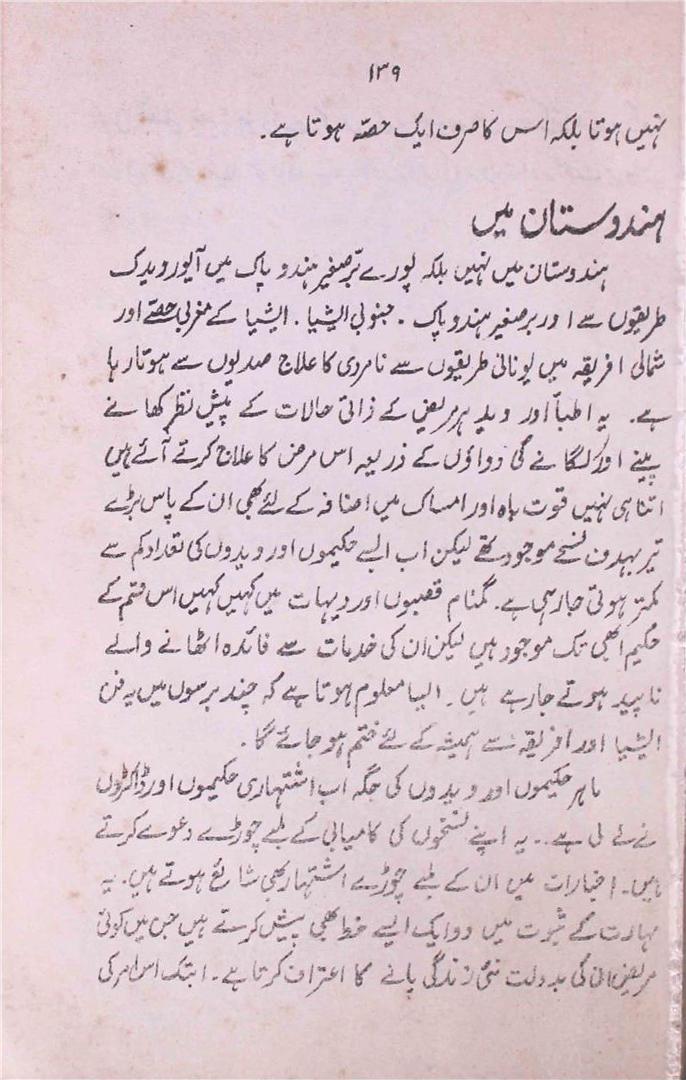 ۱۳۹
نہیں ہوتا بلکہ اس کا صرف ایک حصہ ہوتا ہے۔
ہندوستان میں
ہندوستان میں نہیں بلکہ پورے برّصغیر ہندو پاک میں آیورویدک
طریقوں سے اور برصغیر ہندو پاک ۔ جنوبی ایشیا ۔ ایشیا کے مغربی حصّے اور
شمالی افریقہ میں یونانی طریقوں سے نامردی کا علاج صدیوں سے ہوتا رہا
ہے۔ یہ اطبأ اور وید ہر مریض کے ذاتی حالات کے پیش نظر کھانے
پینے اور لگانے کی دواؤں کے ذریعہ اس مرض کا علاج کرتے آئے ہیں
اتنا ہی نہیں قوت باہ اور امساک میں اضافہ کے لئے بھی ان کے پاس بڑے
تیر بہدف نسخے موجود تھے لیکن اب ایسے حکیموں اور ویدوں کی تعداد کم سے
کمتر ہوتی جا رہی ہے۔ گمنام قصبوں اور دیہات میں کہیں کہیں اس قسم کے
حکیم ابھی تک موجود ہیں لیکن ان کی خدمات سے فائدہ اٹھانے والے
ناپید ہوتے جا رہے ہیں۔ ایسا معلوم ہوتا ہے کہ چند برسوں میں یہ فن
ایشیا اور افریقہ سے ہمیشہ کے لئے ختم ہو جائے گا۔
ماہر حکیموں اور ویدوں کی جگہ اب اشتہاری حکیموں اور ڈاکٹروں
نے لے لی ہے۔۔ یہ اپنے نسخوں کی کامیابی کے لمبے چوڑے دعوے کرتے
ہیں۔ اخبارات میں ان کے لمبے چوڑے اشتہار بھی شائع ہوتے ہیں۔ یہ
مہارت کے ثبوت میں دو ایک ایسے خط بھی پیش کرتے ہیں جس میں کوئی
مریض ان کی بدولت نئی زندگی پانے کا اعتراف کرتا ہے۔ ابتک اس امر کی